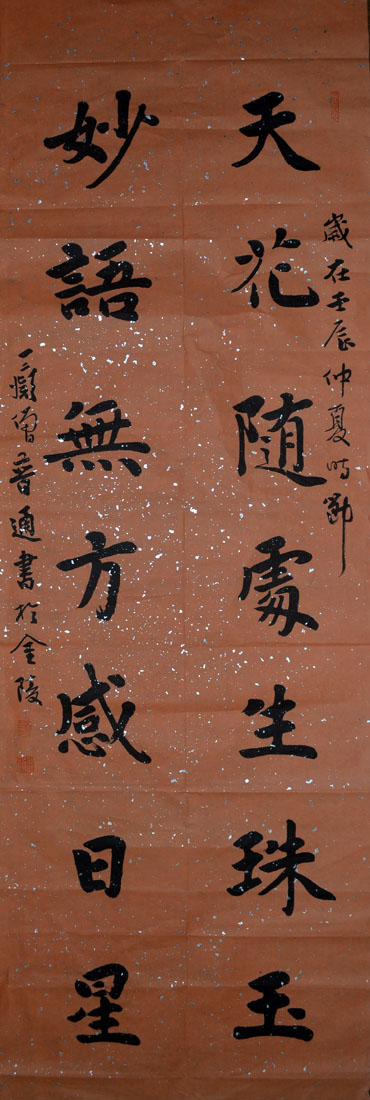 歲在壬辰仲夏時節
天花随處生珠玉
妙語無方感日星
普通書於金陵